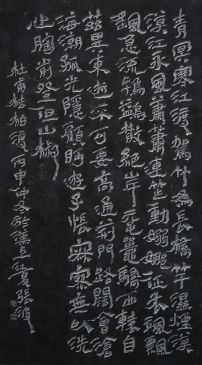 青冥寒江渡駕竹為長橋竿濕煙漠
漠江永風蕭蕭連笮動嫋娜征衣颯飄
颻急流鴇鷁散絕岸黿鼉驕西轅自
茲異東逝不可要高通荊門路闊會滄
海潮孤光隱顧眄游子悵寂寥無以洗
心胸前登但山椒
杜甫桔柏渡丙申仲冬於